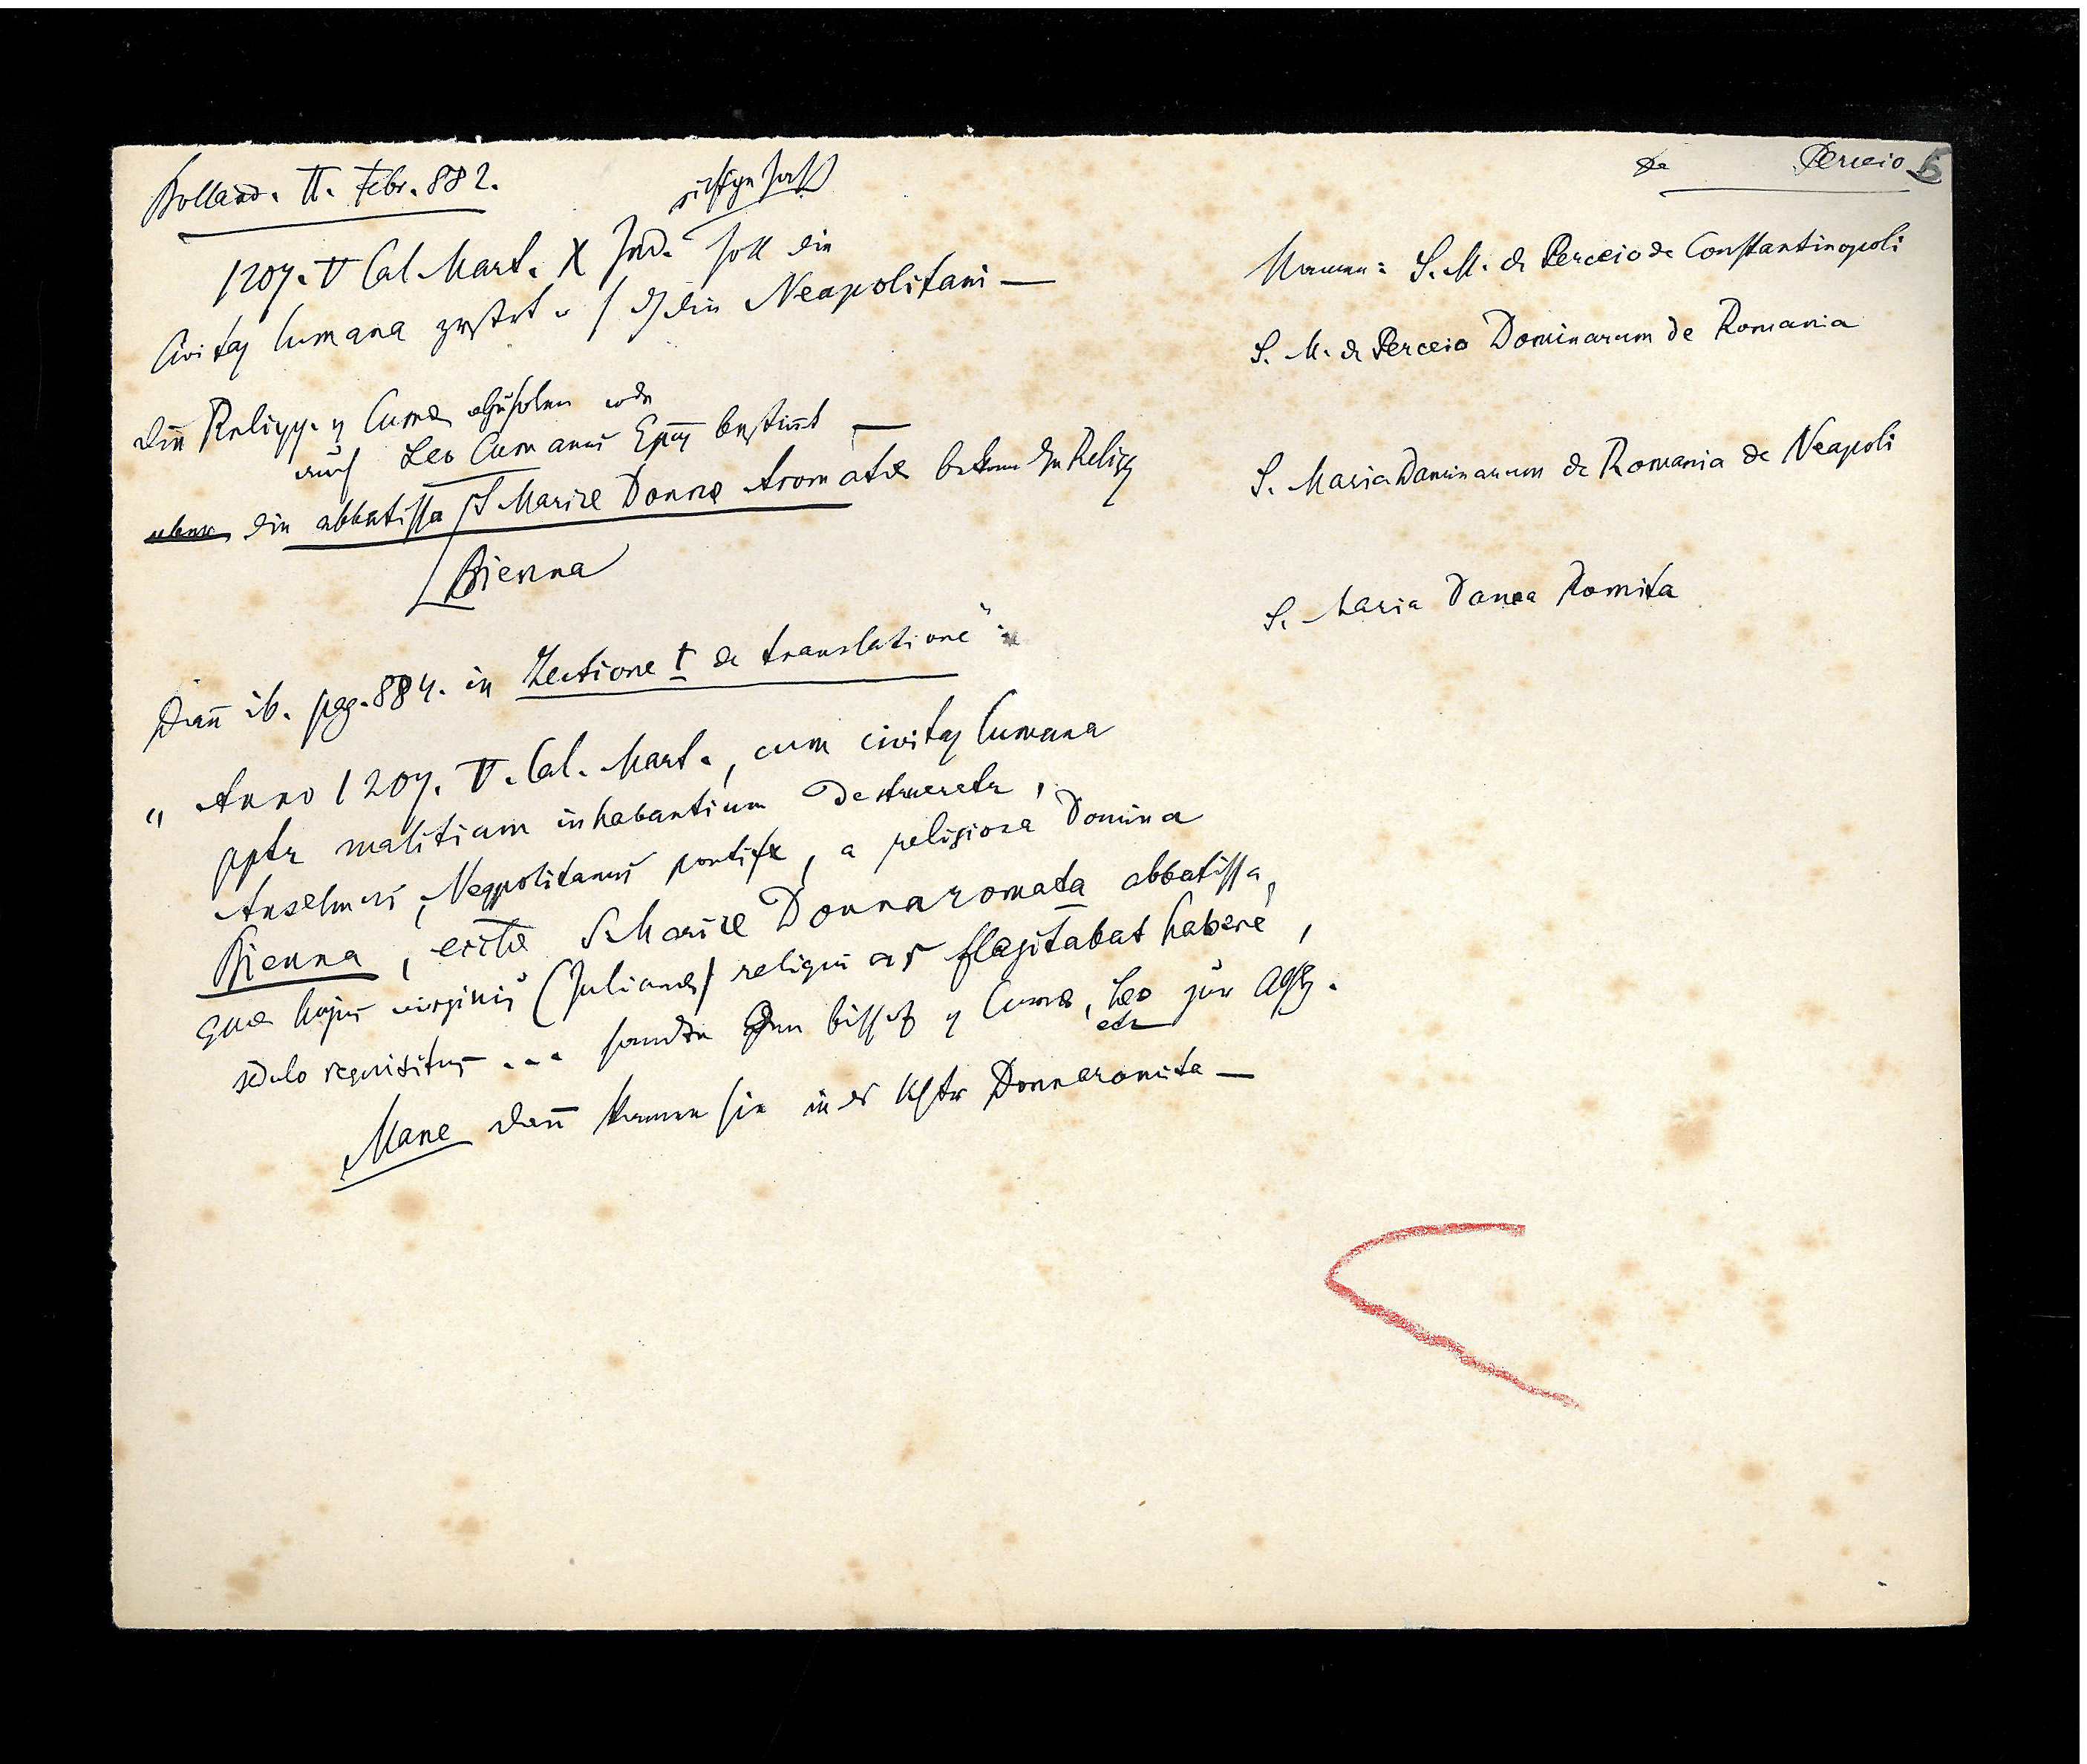 Bolland. II. Febr. 882.
1207. V Cal. Mart. X Ind. soll die
Civitas Cumana zerstört u. die Neapolitani —
die Reliqq. Cumae abzuholen
auch Leo Cumanus Epus bestimt —
die abbatissa S Mariae Donnae Aromatae bekam den Reliqq
Bienna
Dann ib. pag. 884. in Lectione V de translatione":
„ Anno 1207. V. Cal. Mart., cum civitas Cumana
pptr malitiam inhabantium destrueretr,
Anselmus, Neapolitanus pontifex, a religiosa Domina
Bienna, ecclae S. Mariae Donnaromata abbatissa,
quae hujus virginis (Julianae) reliquias flagitabat habere,
sedulo requisitus ... sandte den Bischof Cumae, Leo zur
etc
Mane dann kamen sie in das Klstr Donnaromita —
de Perceio 6
Namen: S. M. de Perceio de Constantinopoli
S. M. de Perceio Dominarum de Romania
S. Maria Dominarum de Romania de Neapoli
S. Maria Donna Romita